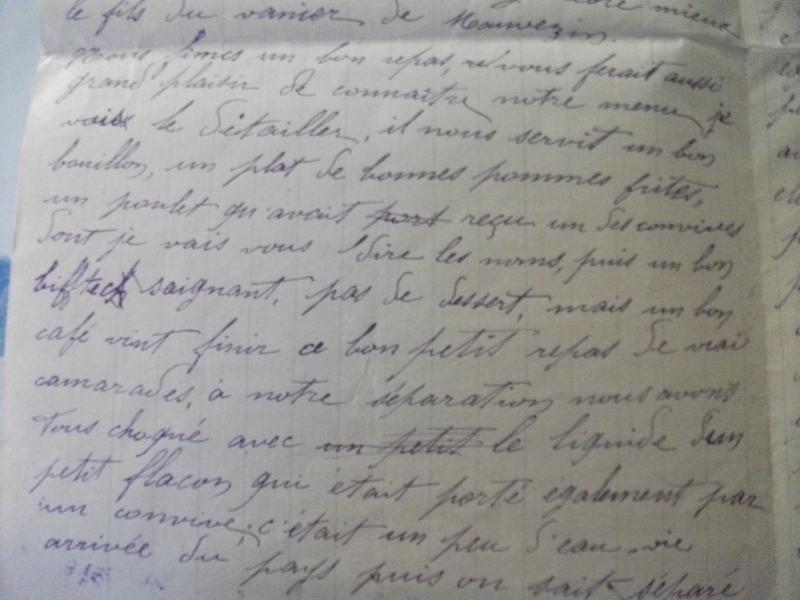 mieux
le fils du vanier de Mauvezin.
nous fîmes un bon repas, vous ferait aussi
grand plaisir de connaître notre menu je
vais le détailler, il nous servit un bon
bouillon, un plat de bonnes pommes frites,
un poulet qu'avait port reçu un des convives
dont je vais vous dire les noms, puis un bon
bifteck saignant, pas de dessert, mais un bon
café vint finir ce bon petit repas de vrai
camarades, à notre séparation nous avons
tous choqué avec un petit le liquide d'un
petit flacon qui était porté également par
un convive, c'était un peu d'eau-vie
arrivée du pays puis on sait séparé